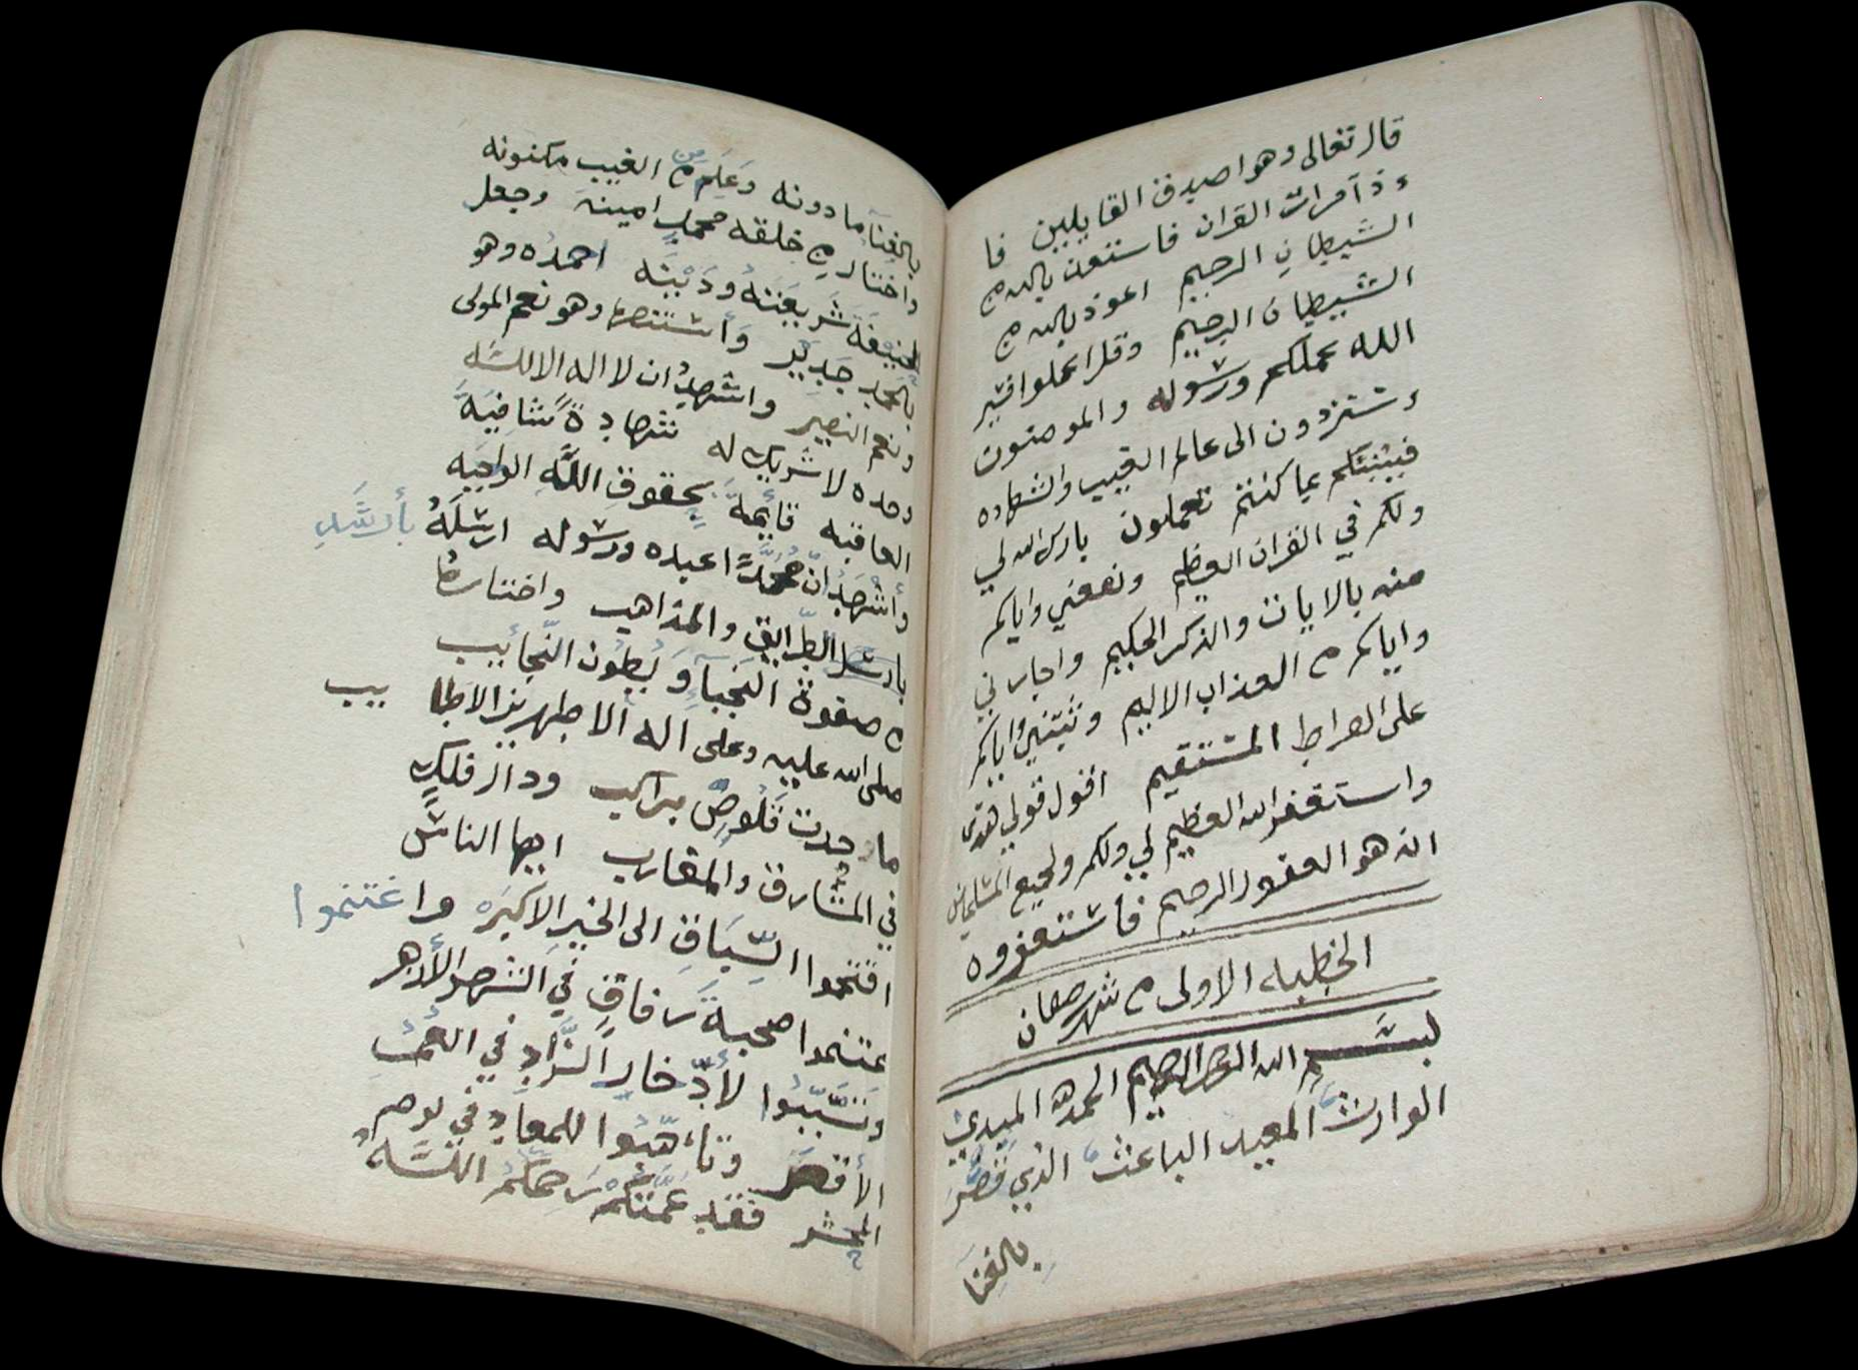 قال تعالى وهو اصدق القايلين فا
ءذا قرات القران فاستعذ بالله من
الشيطان الرجيم اعوذ بالله من
الشيطان الرجيم وقل اعملوا فسير
الله عملكم ورسوله والمومنون
وستردون الى عالم الغيب والشهاده
فينبئكم بما كنتم تعملون بارك الله لي
ولكم في القران العظيم ونفعني واياكم
منه بالايات والذكر الحكيم واجارني
واياكم من العذاب الاليم وثبتني واياكم
على الصراط المستقيم اقول قولي هذا
واستغفر الله العظيم لي ولكم ولجميع المسلمين
انه هو الغفور الرحيم فاستغفروه
الخطبه الاولى من شهر رمضان
بسم الله الرحمن الرحيم الحمد لله المبدئ
الوارث المعيد الباعث الذي قصر
بالفنا
بالفنا ما دونه وعلم من الغيب مكنونه
واختار من خلقه محمد امينه وجعل
الحنيفة شريعته ودينه احمده وهو
بالحمد جدير وأستنصره وهو نعم المولى
ونعم النصير واشهد ان لا اله الا الله
وحده لا شريك له شهادة شافية
العاقبه قائمة بحقوق الله الواجبه
وأشهد ان محمدا عبده ورسوله ارسله بأرشد
الطرايق والمذاهب واختاره
من صفوة النجبآء وبطون النجائب
صلى الله عليه وعلى اله الاطهرين الاطا يب
ما وجدت قلوص براكب ودار فلك
في المشارق والمغارب ايها الناس
اقتحموا السباق الى الخير الاكبر واغتنموا
صحبة رفاق في الشهر الأزهر
وتسببوا لأدخار الزاد في العمر
الأقصر وتاهبوا للمعاد في يوم
المحشر فقد عمتكم رحمكم الله